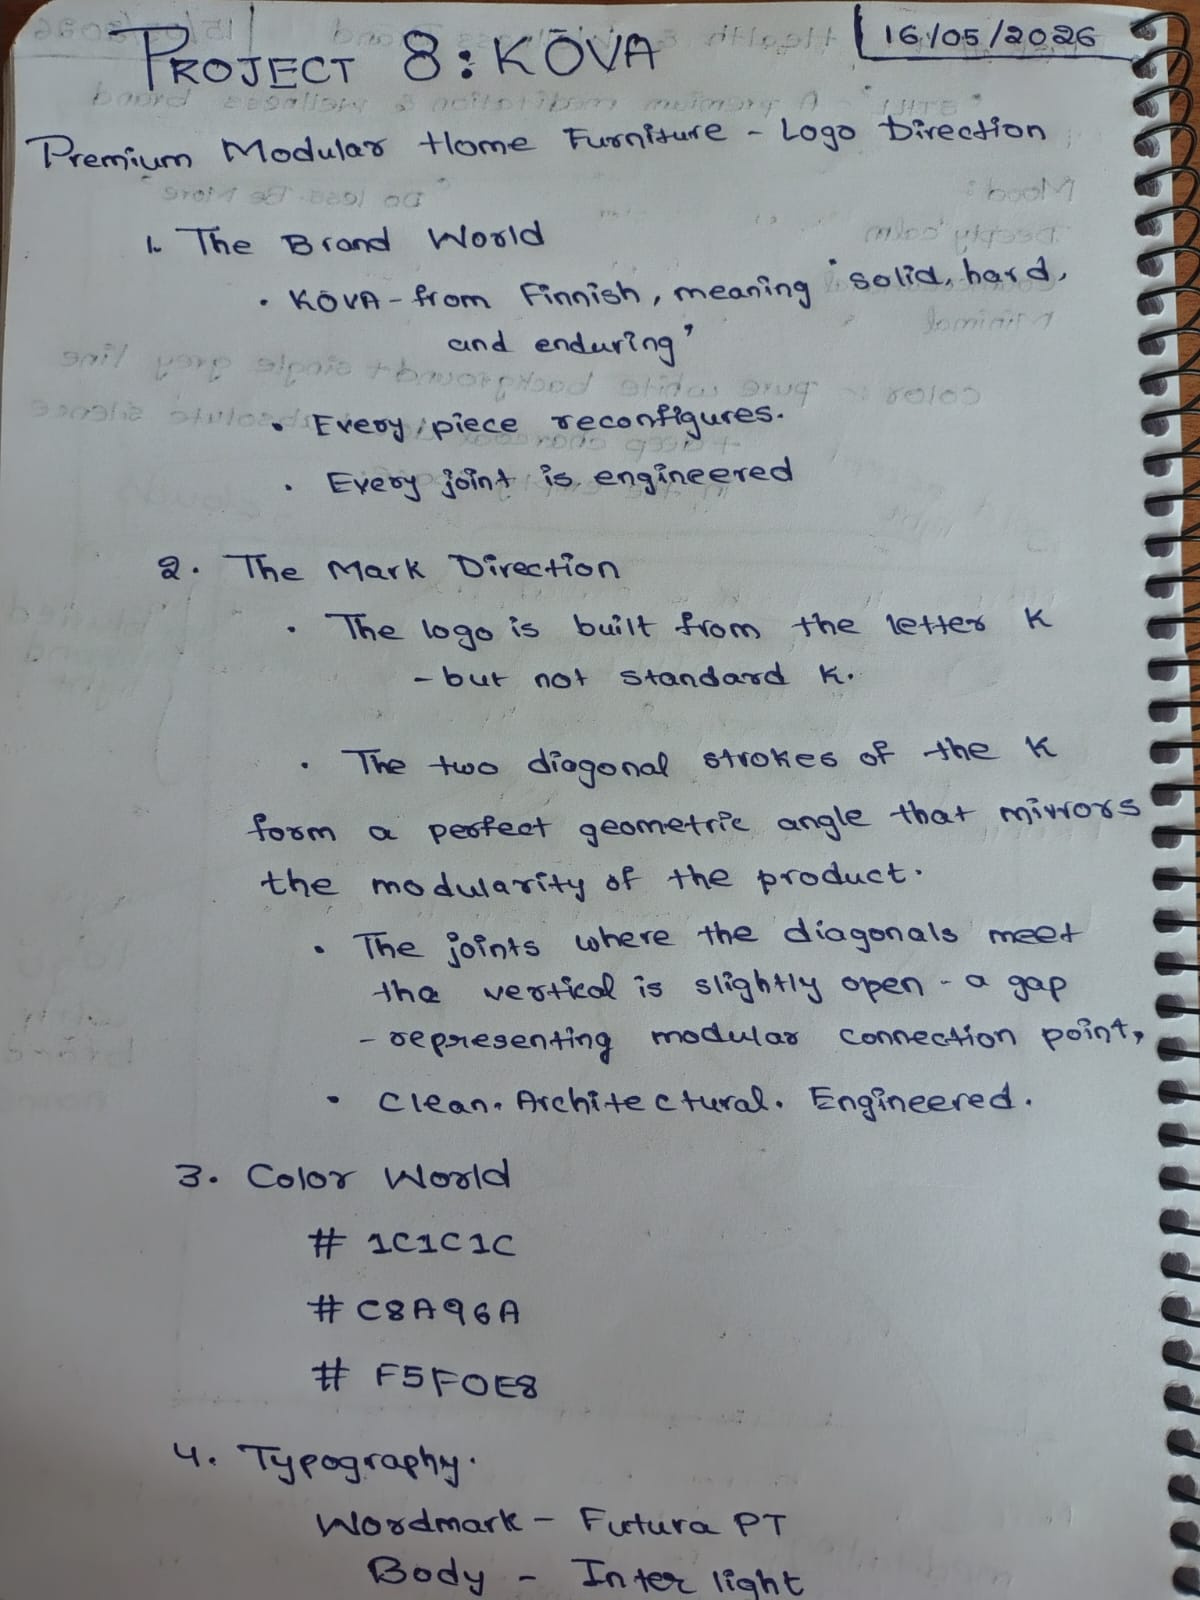 PROJECT 8: KŌVA
16/05/2026
Premium Modular Home Furniture - Logo Direction
1. The Brand World
• KŌVA - from Finnish, meaning 'solid, hard,
and enduring'
• Every piece reconfigures.
• Every joint is engineered
2. The Mark Direction
• The logo is built from the letter K
- but not standard K.
• The two diagonal strokes of the K
form a perfect geometric angle that mirrors
the modularity of the product.
• The joints where the diagonals meet
the vertical is slightly open - a gap
- representing modular connection point,
• Clean. Architectural. Engineered.
3. Color World
# 1C1C1C
# C8A96A
# F5F0E8
4. Typography.
Wordmark - Futura PT
Body - Inter light